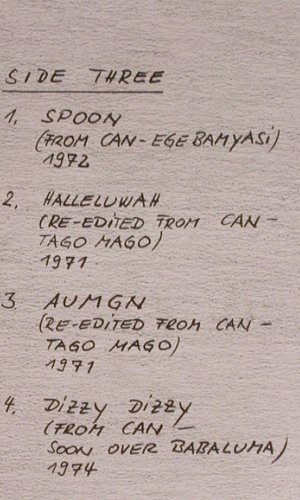 SIDE THREE
1. SPOON
(FROM CAN-EGE BAMYASI)
1972
2. HALLELUWAH
(RE-EDITED FROM CAN-
TAGO MAGO)
1971
3 AUMGN
(RE-EDITED FROM CAN-
TAGO MAGO)
1971
4. DIZZY DIZZY
(FROM CAN-
SOON OVER BABALUMA)
1974